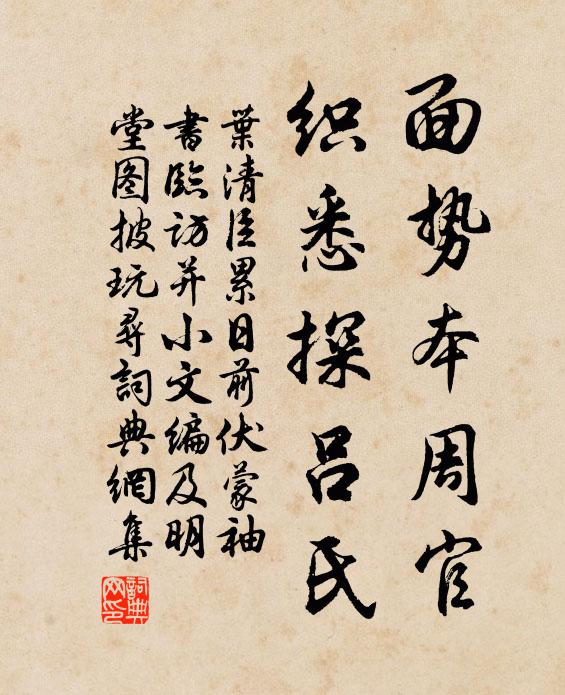 面势本周官
织悉探吕氏
葉清臣累日前伏蒙袖
書臨访并小文编及明
堂图披玩尋詞典網集
詞典
网印